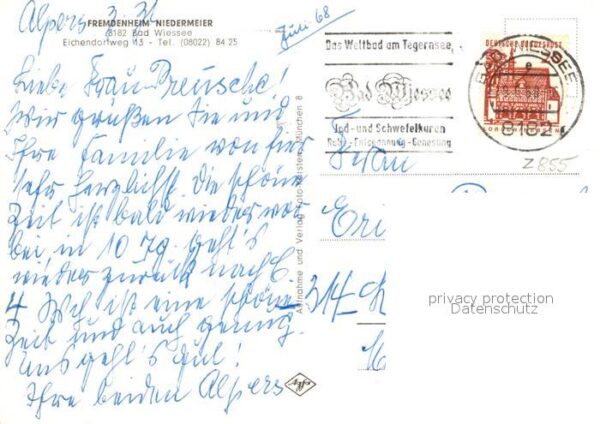 Alpers z. Zt.
FREMDENHEIM NIEDERMEIER
8182 Bad Wiessee
Eichendorfweg 13 - Tel. (08022) 84 25
Juli 68
Liebe Frau Preusche!
Wir grüßen Sie und
Ihre Familie von hier
sehr herzlichst. Die schöne
Zeit ist bald wieder vor
bei in 10 Tg. geht's
wieder zurück nach
4 Wch ist eine schöne
Zeit und auch genug.
Uns geht's gut!
Ihre beiden Alpers
Aufnahme und Verlag München 8
Agfa
Das Weltbad am Tegernsee
Bad Wiessee
Jod- und Schwefelkuren
Ruhe - Entspannung - Genesung
DEUTSCHE BUNDESPOST
BAD WIESSEE
8182
Z 855
Frau
314
privacy protection
Datenschutz